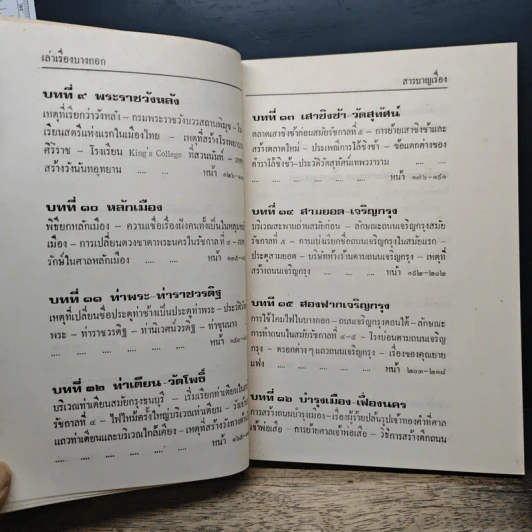 เล่าเรื่องบางกอก
บทที่ ๙ พระราชวังหลัง
เหตุที่เรียกว่าวังหลัง – กรมพระราชวังบวรสถานพิมุข – โรง
เรียนสตรีแห่งแรกในเมืองไทย – เหตุที่สร้างโรงพยาบาล
ศิริราช – โรงเรียน King's College ที่สวนนันท์ –
สร้างวังนันทอุทยาน .... .... หน้า
บทที่ ๑๐ หลักเมือง
พิธียกหลักเมือง – ความเชื่อเรื่องฝังคนทั้งเป็นในหลุมหลัก
เมือง – การเปลี่ยนดวงชาตาพระนครในรัชกาลที่ ๔ –
รักษ์ในศาลหลักเมือง .... .... หน้า
บทที่ ๑๑ ท่าพระ-ท่าราชวรดิฐ
เหตุที่เปลี่ยนชื่อประตูท่าช้างเป็นประตูท่าพระ –
พระ – ท่าราชวรดิฐ – ท่านิเวศน์วรดิฐ – ท่าขุนนาง –
.... .... .... .... หน้า
บทที่ ๑๒ ท่าเตียน-วัดโพธิ์
บริเวณท่าเตียนสมัยกรุงธนบุรี – เริ่มเรียกท่าเตียนใน
รัชกาลที่ ๔ – ไฟไหม้ครั้งใหญ่บริเวณท่าเตียน –
แถวท่าเตียนและบริเวณใกล้เคียง – เหตุที่สร้างวัง
.... .... .... .... หน้า
สารบาญเรื่อง
บทที่ ๑๓ เสาชิงช้า-วัดสุทัศน์
ตลาดเสาชิงช้าก่อนสมัยรัชกาลที่ ๕ – การย้ายเสาชิงช้าและ
สร้างตลาดใหม่ – ประเพณีการโล้ชิงช้า – ข้อแตกต่างของ
ตำราโล้ชิงช้า-ประวัติวัดสุทัศน์เทพวราราม
.... .... .... .... .... หน้า ๑๗๖-๑๙๑
บทที่ ๑๔ สามยอด-เจริญกรุง
บริเวณสะพานถ่านสมัยก่อน – ลักษณะถนนเจริญกรุงสมัย
รัชกาลที่ ๕ – การแบ่งเรียกชื่อถนนเจริญกรุงในสมัยแรก –
ประตูสามยอด – บริษัทห้างร้านตามถนนเจริญกรุง – เหตุที่
สร้างถนนเจริญกรุง .... .... .... หน้า ๑๙๒-๒๐๒
บทที่ ๑๕ สองฟากเจริญกรุง
การใช้โคมไฟในบางกอก – ถนนเจริญกรุงตอนใต้ – ลักษณะ
การทำถนนในสมัยรัชกาลที่ ๔-๕ – โรงบ่อนตามถนนเจริญ
กรุง – ตรอกต่าง ๆ แถวถนนเจริญกรุง – เรื่องของคุณยาย
แฟง .... .... .... .... หน้า ๒๐๓-๒๑๘
บทที่ ๑๖ บำรุงเมือง-เฟื่องนคร
การสร้างถนนบำรุงเมือง – เรื่องผู้ร้ายปล้นรูปเจ้าทองคำที่ศาล
เจ้าพ่อเสือ – การย้ายศาลเจ้าพ่อเสือ – วิธีการสร้างตึกถนน